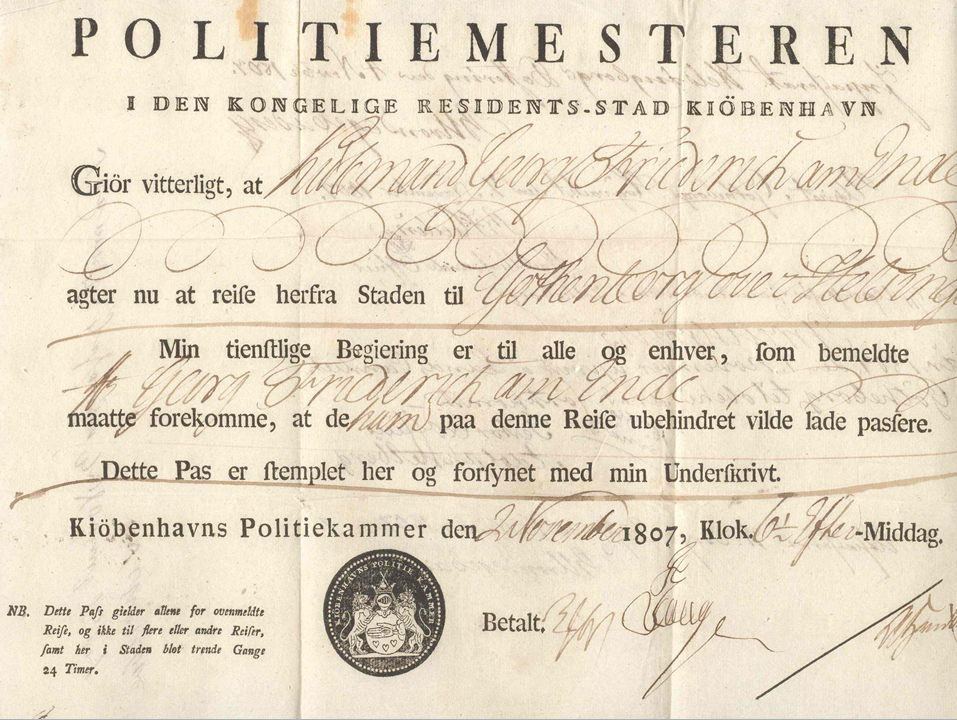 POLITIEMESTEREN
I DEN KONGELIGE RESIDENTS-STAD KIÖBENHAVN
Giör vitterligt, at Georg Friderich am Ende
agter nu at reiſe herfra Staden til Gothenborg over Helsing
Min tienſtlige Begiering er til alle og enhver, ſom bemeldte
Georg Friderich am Ende
maatte forekomme, at de ham paa denne Reiſe ubehindret vilde lade paſſere.
Dette Pas er ſtemplet her og forſynet med min Underſkrivt.
Kiöbenhavns Politiekammer den 2 November 1807, Klok. 6½ Efter-Middag.
KIÖBENHAVNS POLITIE KAMMER
NB. Dette Paſs gielder allene for ovenmeldte
Reiſe, og ikke til flere eller andre Reiſer,
ſamt her i Staden blot trende Gange
24 Timer.
Betalt.